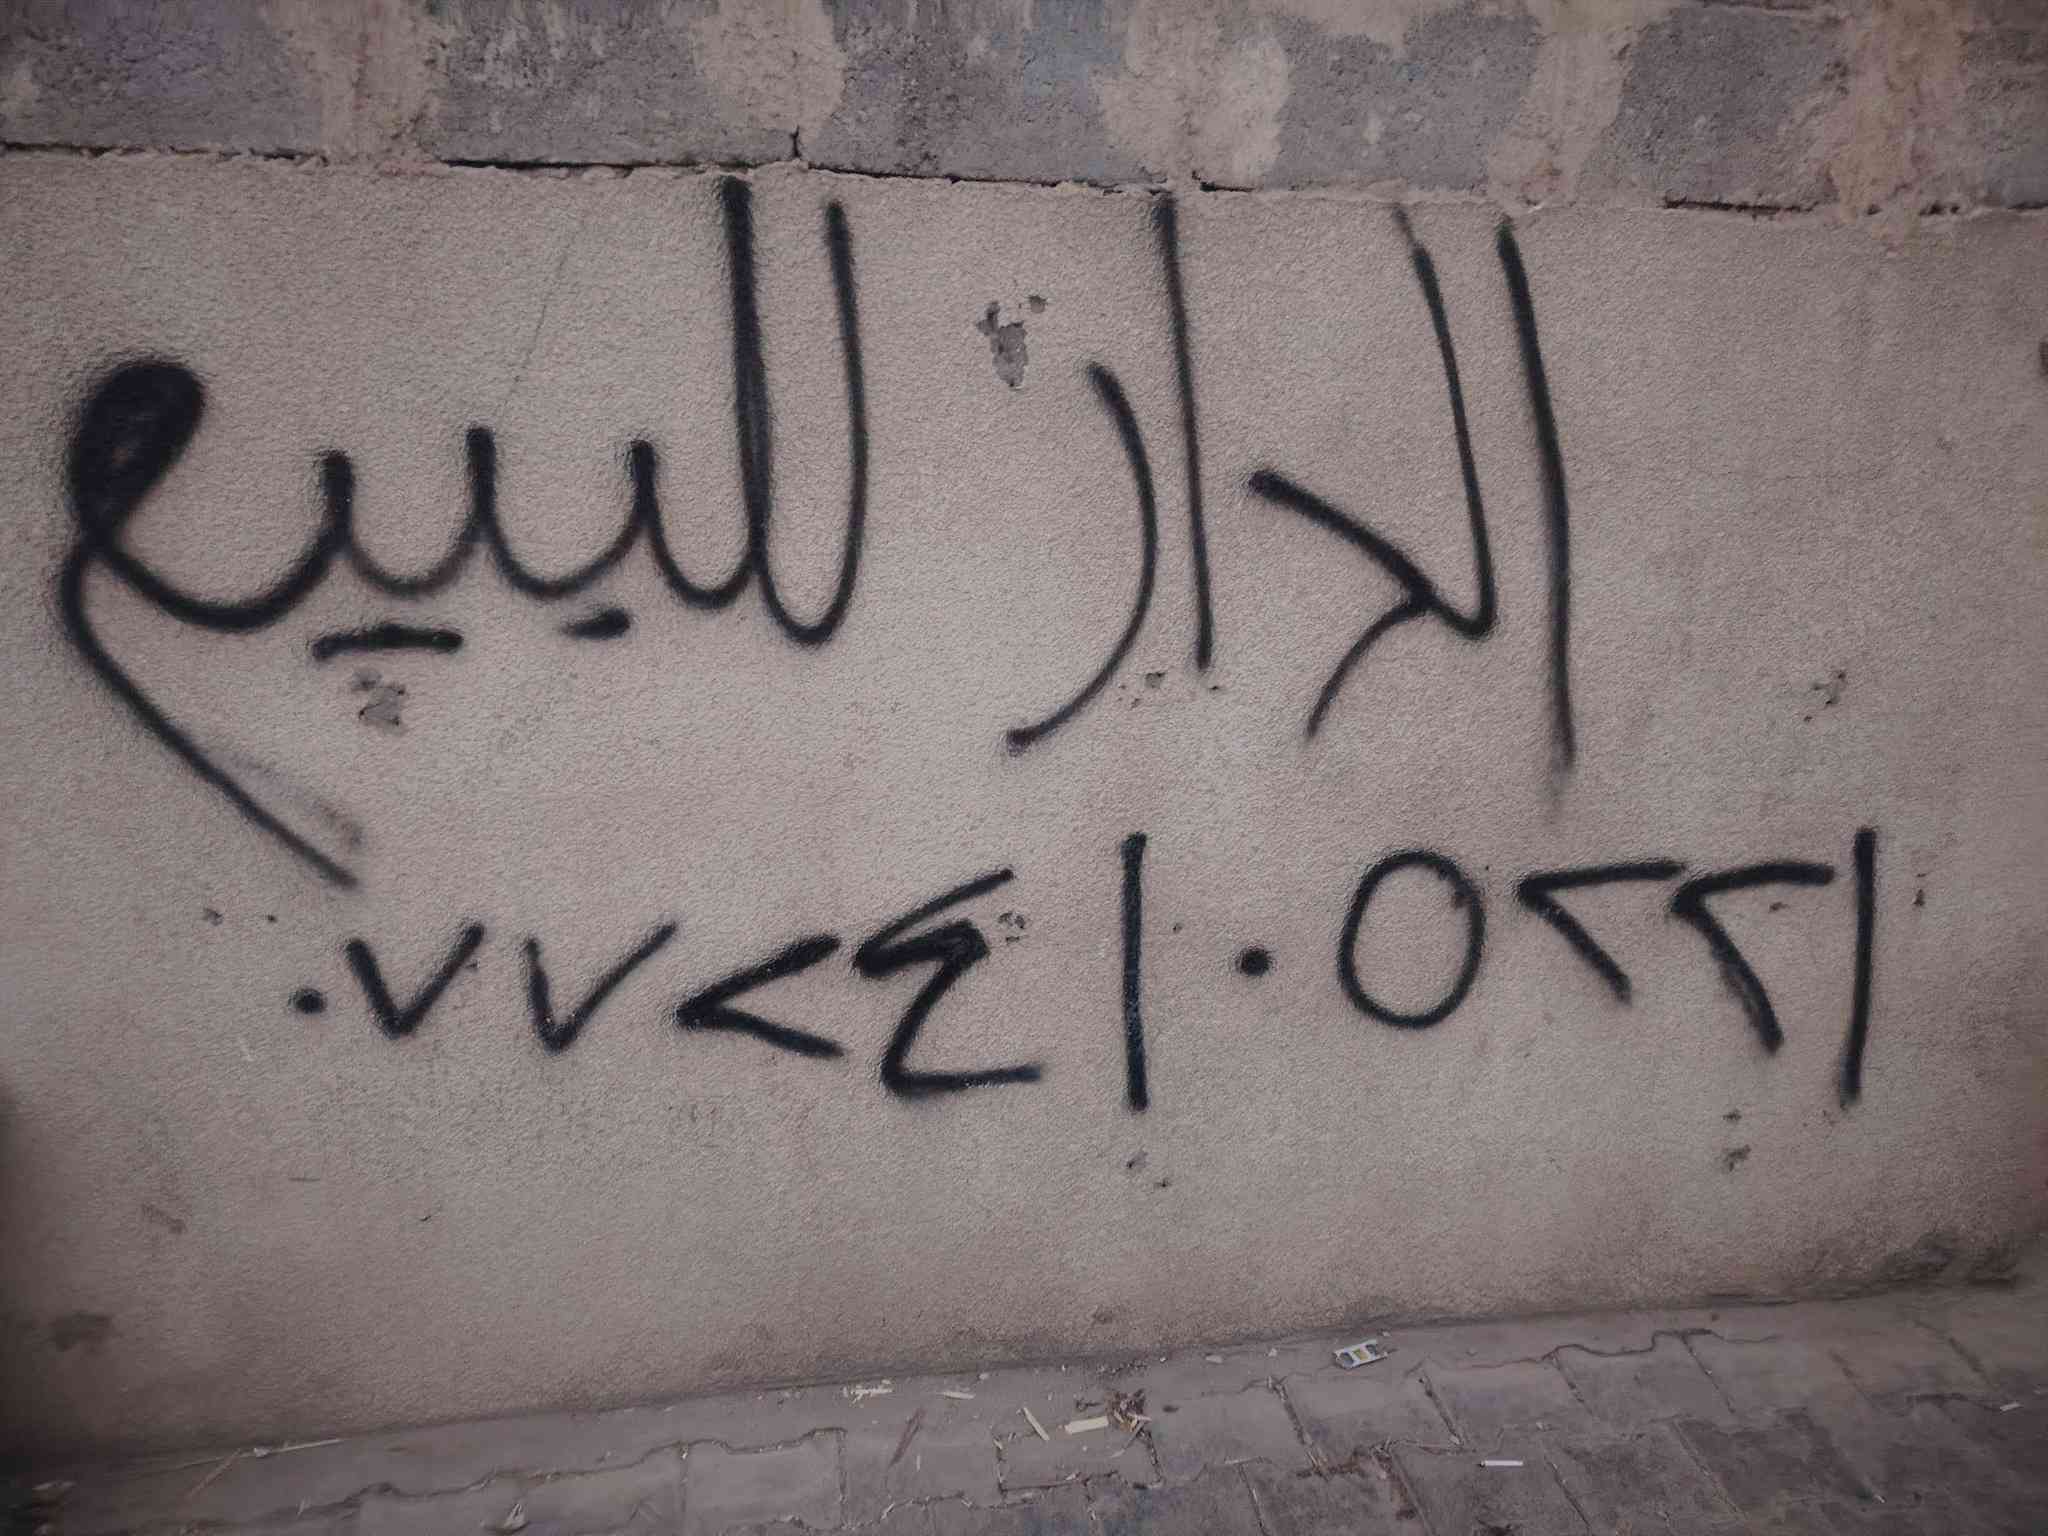 الدار للبيع
٠٧٧٢٤١٠٥٢٢١